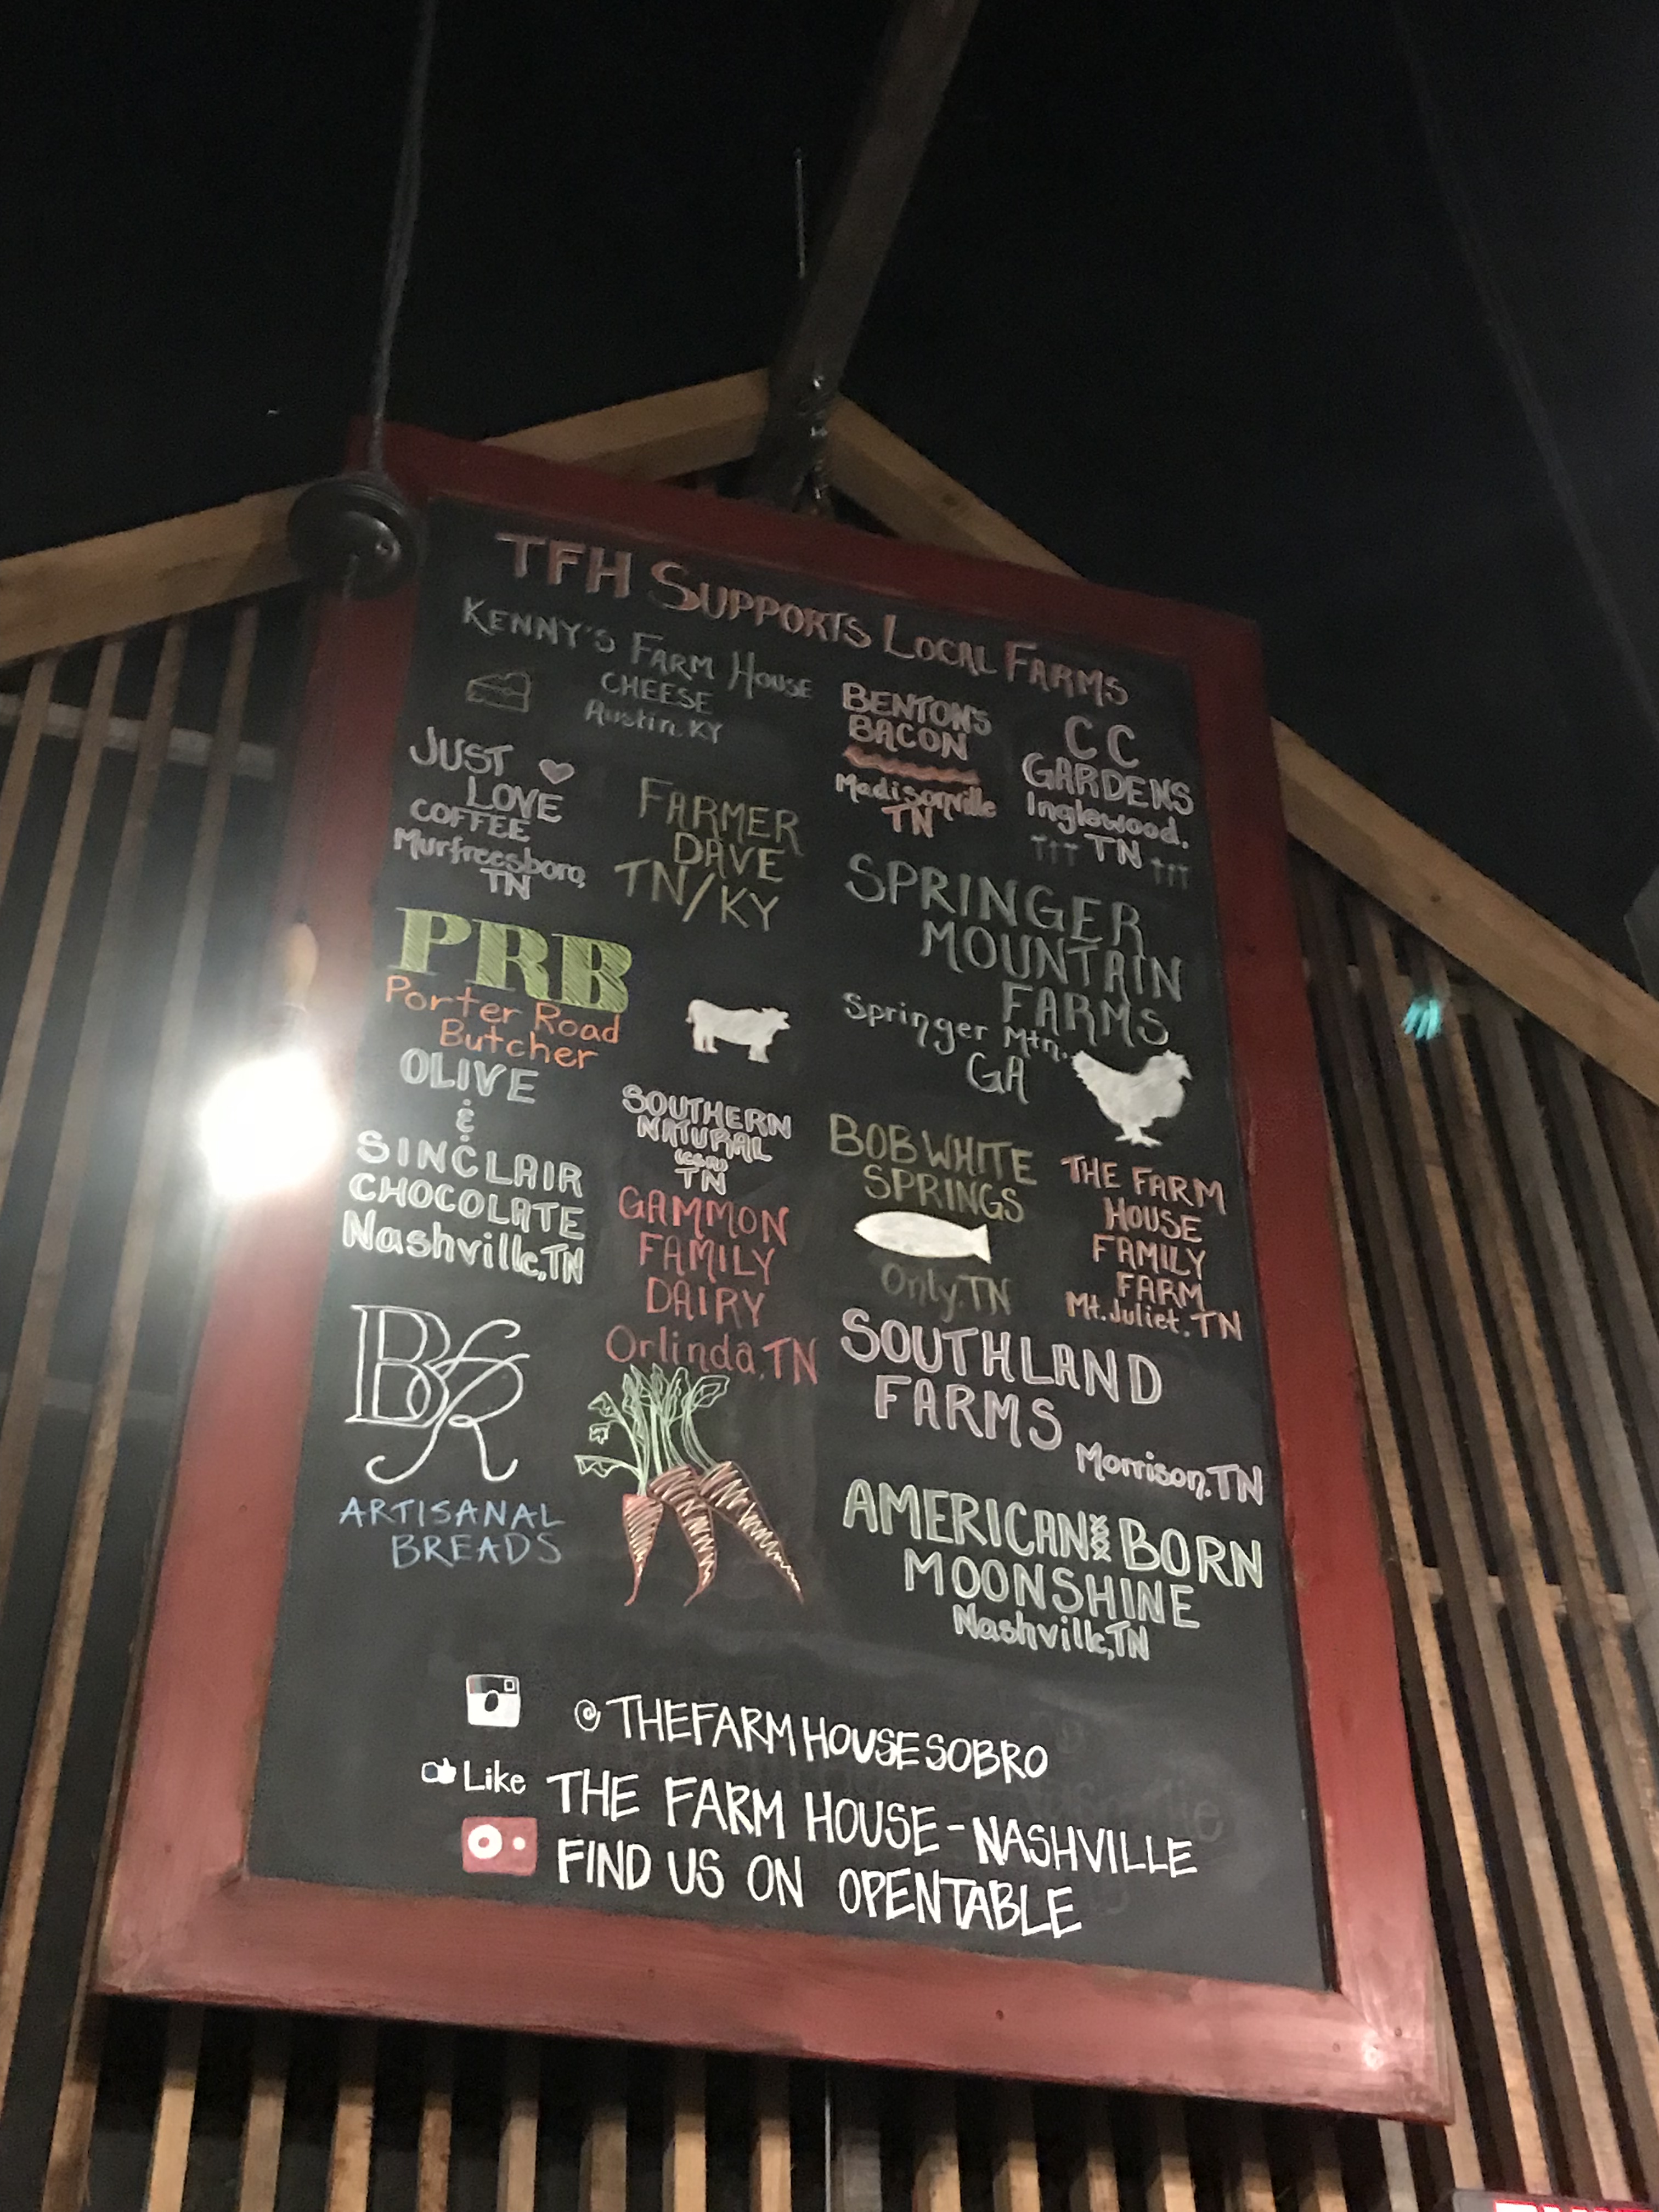 TFH SUPPORTS LOCAL FARMS
KENNY'S FARM HOUSE
CHEESE
Austin, KY
BENTON'S
BACON
Madisonville
TN
CC
GARDENS
Inglewood,
TN
JUST
LOVE
COFFEE
Murfreesboro,
TN
FARMER
DAVE
TN/KY
SPRINGER
MOUNTAIN
FARMS
Springer Mtn.
GA
PRB
Porter Road
Butcher
OLIVE
&
SINCLAIR
CHOCOLATE
Nashville, TN
SOUTHERN
NATURAL
(CSA)
TN
GAMMON
FAMILY
DAIRY
Orlinda, TN
BOB WHITE
SPRINGS
Only, TN
THE FARM
HOUSE
FAMILY
FARM
Mt. Juliet, TN
SOUTHLAND
FARMS
Morrison, TN
ARTISANAL
BREADS
AMERICAN BORN
MOONSHINE
Nashville, TN
@THEFARMHOUSESOBRO
Like THE FARM HOUSE-NASHVILLE
FIND US ON OPENTABLE